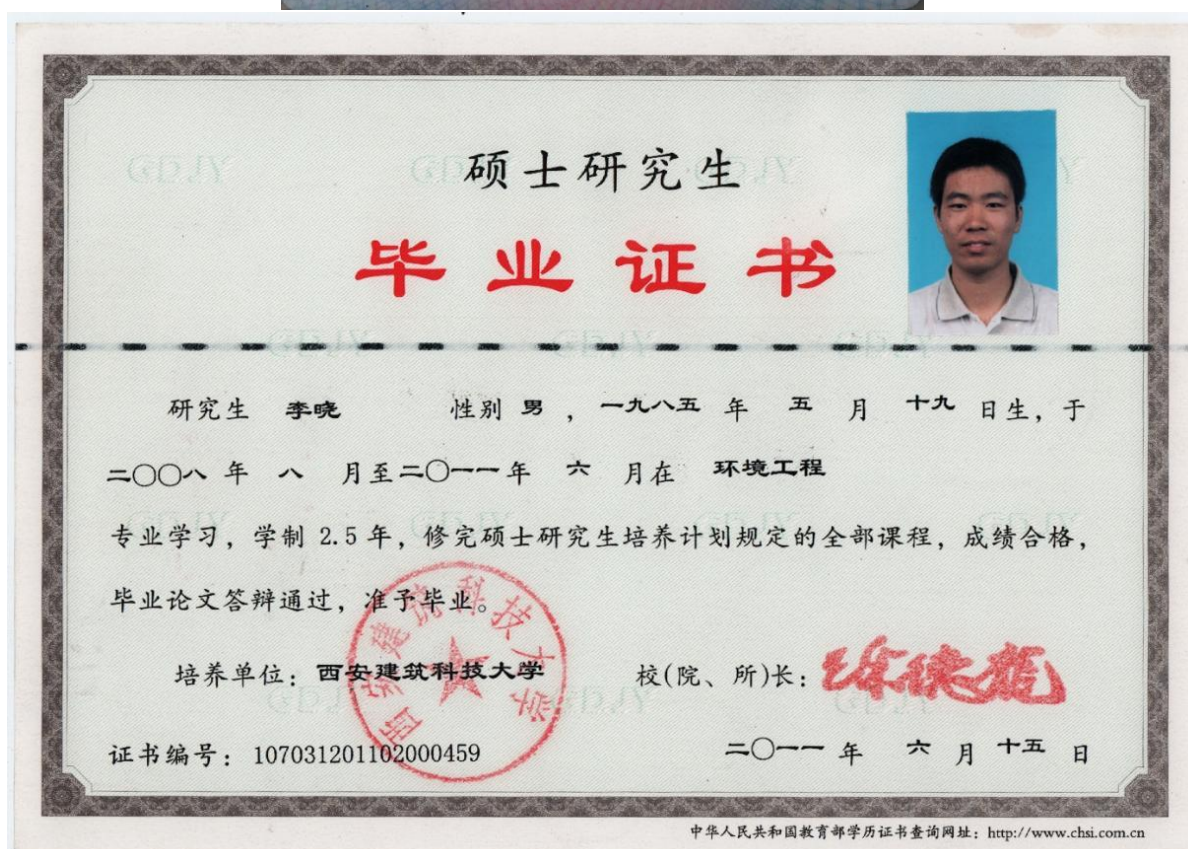 硕士研究生
毕业证书
研究生 李晓 性别 男 ， 一九八五 年 五 月 十九 日生，于
二〇〇八 年 八 月至 二〇一一 年 六 月在 环境工程
专业学习，学制 2.5 年，修完硕士研究生培养计划规定的全部课程，成绩合格，
毕业论文答辩通过，准予毕业。
培养单位：西安建筑科技大学 校(院、所)长：徐德龙
西安建筑科技大学
证书编号：107031201102000459 二〇一一 年 六 月 十五 日
中华人民共和国教育部学历证书查询网址：http://www.chsi.com.cn